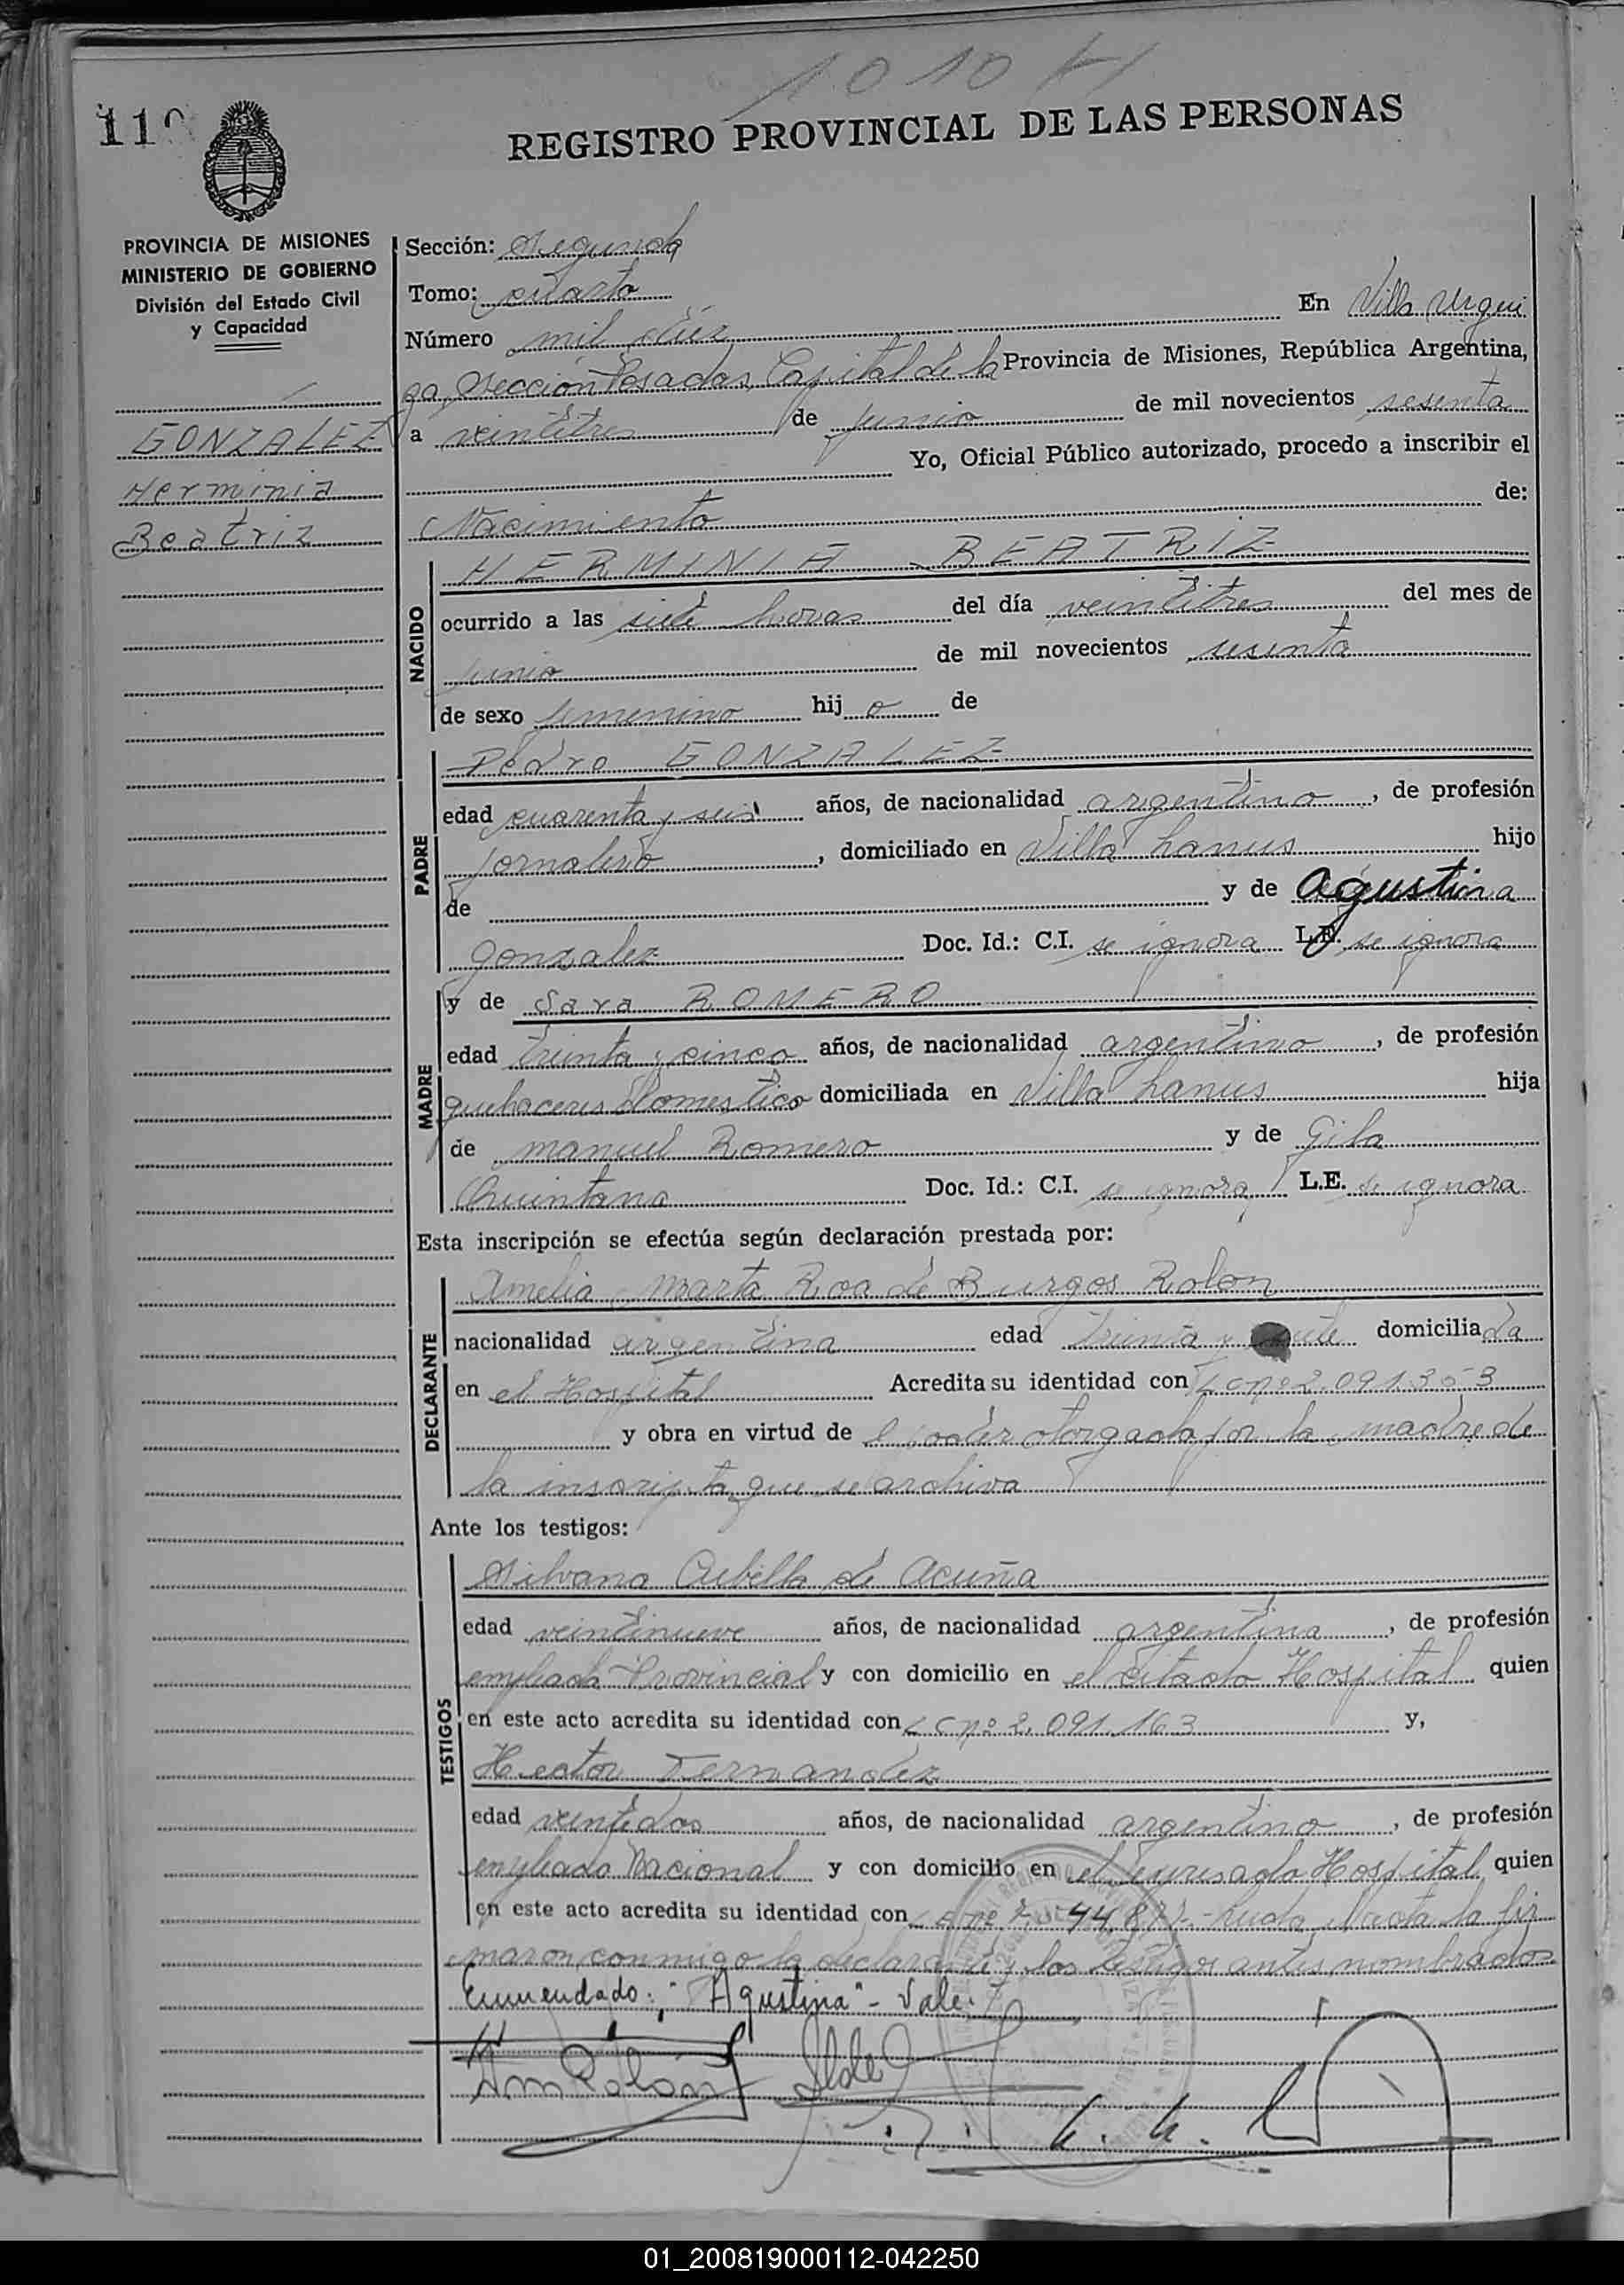 1010
REGISTRO PROVINCIAL DE LAS PERSONAS
PROVINCIA DE MISIONES
MINISTERIO DE GOBIERNO
División del Estado Civil
y Capacidad
GONZALEZ
Herminia
Beatriz
Sección: Segunda
Tomo: cuarto
Número mil diez En Villa Urqui
za, Sección Posadas, Capital de la Provincia de Misiones, República Argentina,
a veintitres de junio de mil novecientos sesenta
Yo, Oficial Público autorizado, procedo a inscribir el
Nacimiento de:
NACIDO
HERMINIA BEATRIZ
ocurrido a las siete horas del día veintitres del mes de
junio de mil novecientos sesenta
de sexo femenino hij a de
PADRE
Pedro GONZALEZ
edad cuarenta y seis años, de nacionalidad argentino, de profesión
jornalero, domiciliado en Villa Lanus hijo
de y de Agustina
Gonzalez Doc. Id.: C.I. se ignora L.E. se ignora
MADRE
y de Sara ROMERO
edad treinta y cinco años, de nacionalidad argentina, de profesión
quehaceres Domestico domiciliada en Villa Lanus hija
de Manuel Romero y de Gila
Quintana Doc. Id.: C.I. se ignora L.E. se ignora
Esta inscripción se efectúa según declaración prestada por:
DECLARANTE
Amelia Marta Roa de Burgos Rolon
nacionalidad argentina edad treinta y siete domiciliada
en el Hospital Acredita su identidad con L C nº 2.091.353
y obra en virtud de l poder otorgada por la madre de
la inscripta que se archiva
Ante los testigos:
TESTIGOS
Silvana Cubilla de Acuña
edad veintinueve años, de nacionalidad argentina, de profesión
empleada Provincial y con domicilio en el citado Hospital quien
en este acto acredita su identidad con L C nº 2.091.163 y,
Hector Fernandez
edad veintidos años, de nacionalidad argentino, de profesión
empleado Nacional y con domicilio en el expresado Hospital quien
en este acto acredita su identidad con nº Leida el acta la fir
maron conmigo la declarante y los testigos antes nombrados
Enmendado: "Agustina" - Vale.
01_200819000112-042250